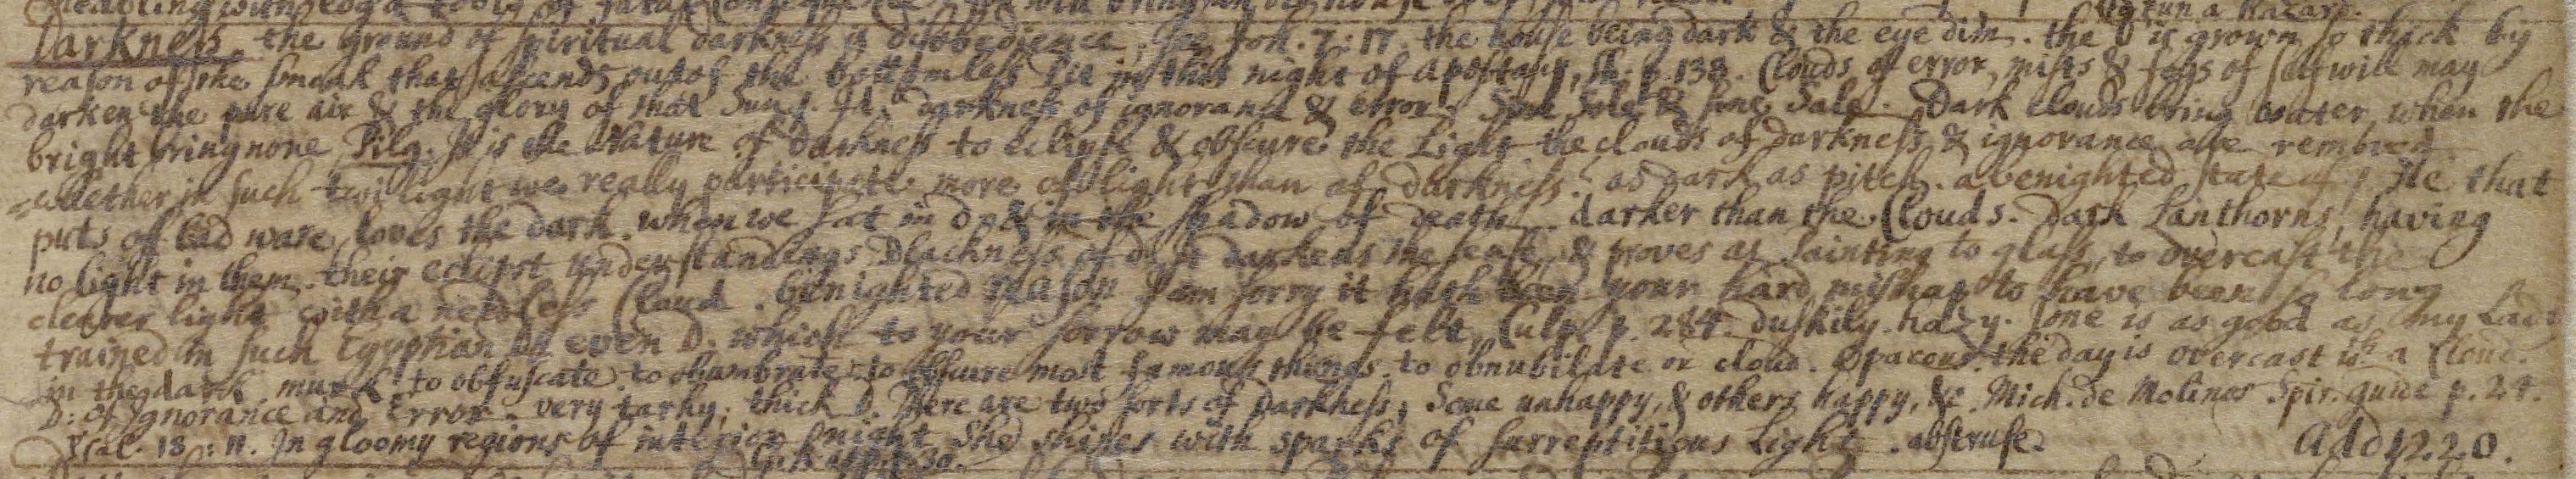 Darkness. the ground of spiritual darkness is disobedience, see Joh. 7:17. the house being dark & the eye dim. the is grown so thick by
reason of the smoak that ascends out of the bottomless Pit in this night of apostasy, p. 138. Clouds of error, mists & fogs of self will may
darken the pure air & the glory of that Sun. darkness of ignorance & error. Sine Sole & sine Sale. Dark clouds bring water, when the
bright bring none Pilg. It is the Nature of Darkness to eclipse & obscure the Light the clouds of darkness & ignorance are removed
whether in such twilight we really participate more of light than of darkness. as dark as pitch. a benighted state He that
puts of bad ware, loves the dark. when we sat in D. & in the shadow of death. darker than the Clouds. Dark Lanthorns, having
no light in them. their eclipst understandings Blackness of darkens the & proves as Painting to glass, to overcast the
clearer light with a needless Cloud. benighted reason I am sorry it hath been your hard mishap to have been so long
trained in such Egyptian even D. which to your sorrow may be felt, p. 284. duskily. hazy. Jone is as good as my Lady
in the dark murk to obfuscate. to obumbrate to obscure most famous things. to obnubilate or cloud. the day is overcast wth a Cloud.
D: of ignorance and Error. very tarky, thick D. There are two sorts of Darkness, Some unhappy, & others happy, &c. Mich. de Molinos Spir. guide p. 24.
Psal. 18: 11. In gloomy regions of night She shines with sparks of surreptitious Light. abstruse. Add p. 20.